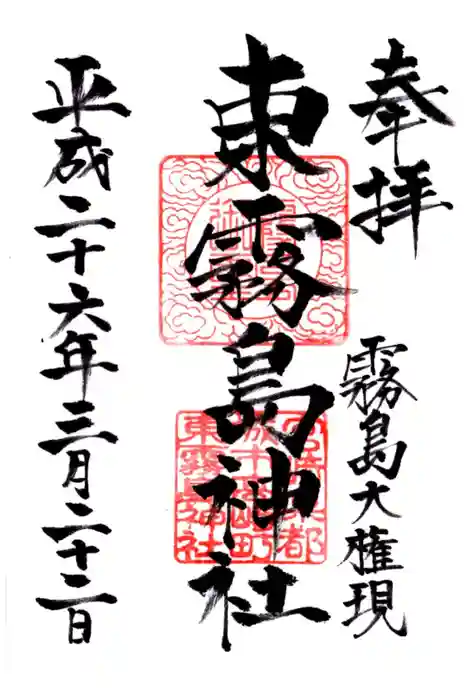 奉拝
霧島大権現
東霧島神社
東霧島神社
平成二十六年三月二十二日